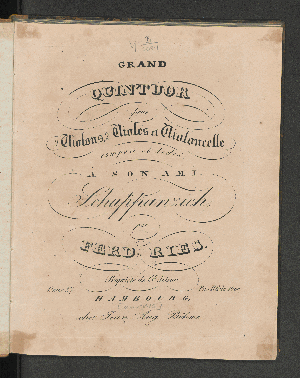 GRAND
QUINTUOR
pour
Violons, Violes et Violoncelle
composé et dédié
A SON AMI
Schuppanzich,
par
FERD. RIES.
Propriété de l'Editeur
HAMBOURG,
chez Jean Aug. Böhme